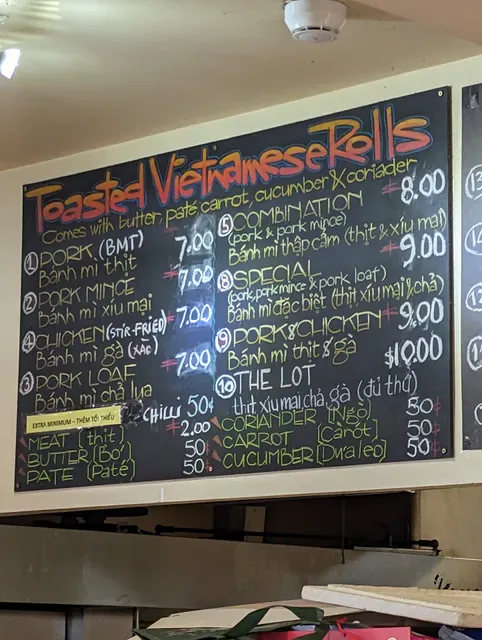 Toasted Vietnamese Rolls
Comes with butter, paté, carrot, cucumber & coriander
① PORK (BMT) 7.00
Bánh mì thịt
② PORK MINCE 7.00
Bánh mì xíu mại
④ CHICKEN (STIR-FRIED) 7.00
Bánh mì gà (XÀC)
③ PORK LOAF 7.00
Bánh mì chả lụa
EXTRA MINIMUM – THÊM TỐI THIỂU
CHILLI 50¢
MEAT (thịt) 2.00
BUTTER (Bơ) 50¢
PATE (Paté) 50¢
⑤ COMBINATION 8.00
(pork & pork mince)
Bánh mì thập cẩm (thịt & xíu mại)
⑧ SPECIAL 9.00
(pork, pork mince & pork loaf)
Bánh mì đặc biệt (thịt xíu mại & chả)
⑨ PORK & CHICKEN 9.00
Bánh mì thịt & gà
⑩ THE LOT $10.00
thịt xíu mại, chả, gà (đủ thứ)
CORIANDER (Ngò) 50¢
CARROT (Càrốt) 50¢
CUCUMBER (Dưa leo) 50¢